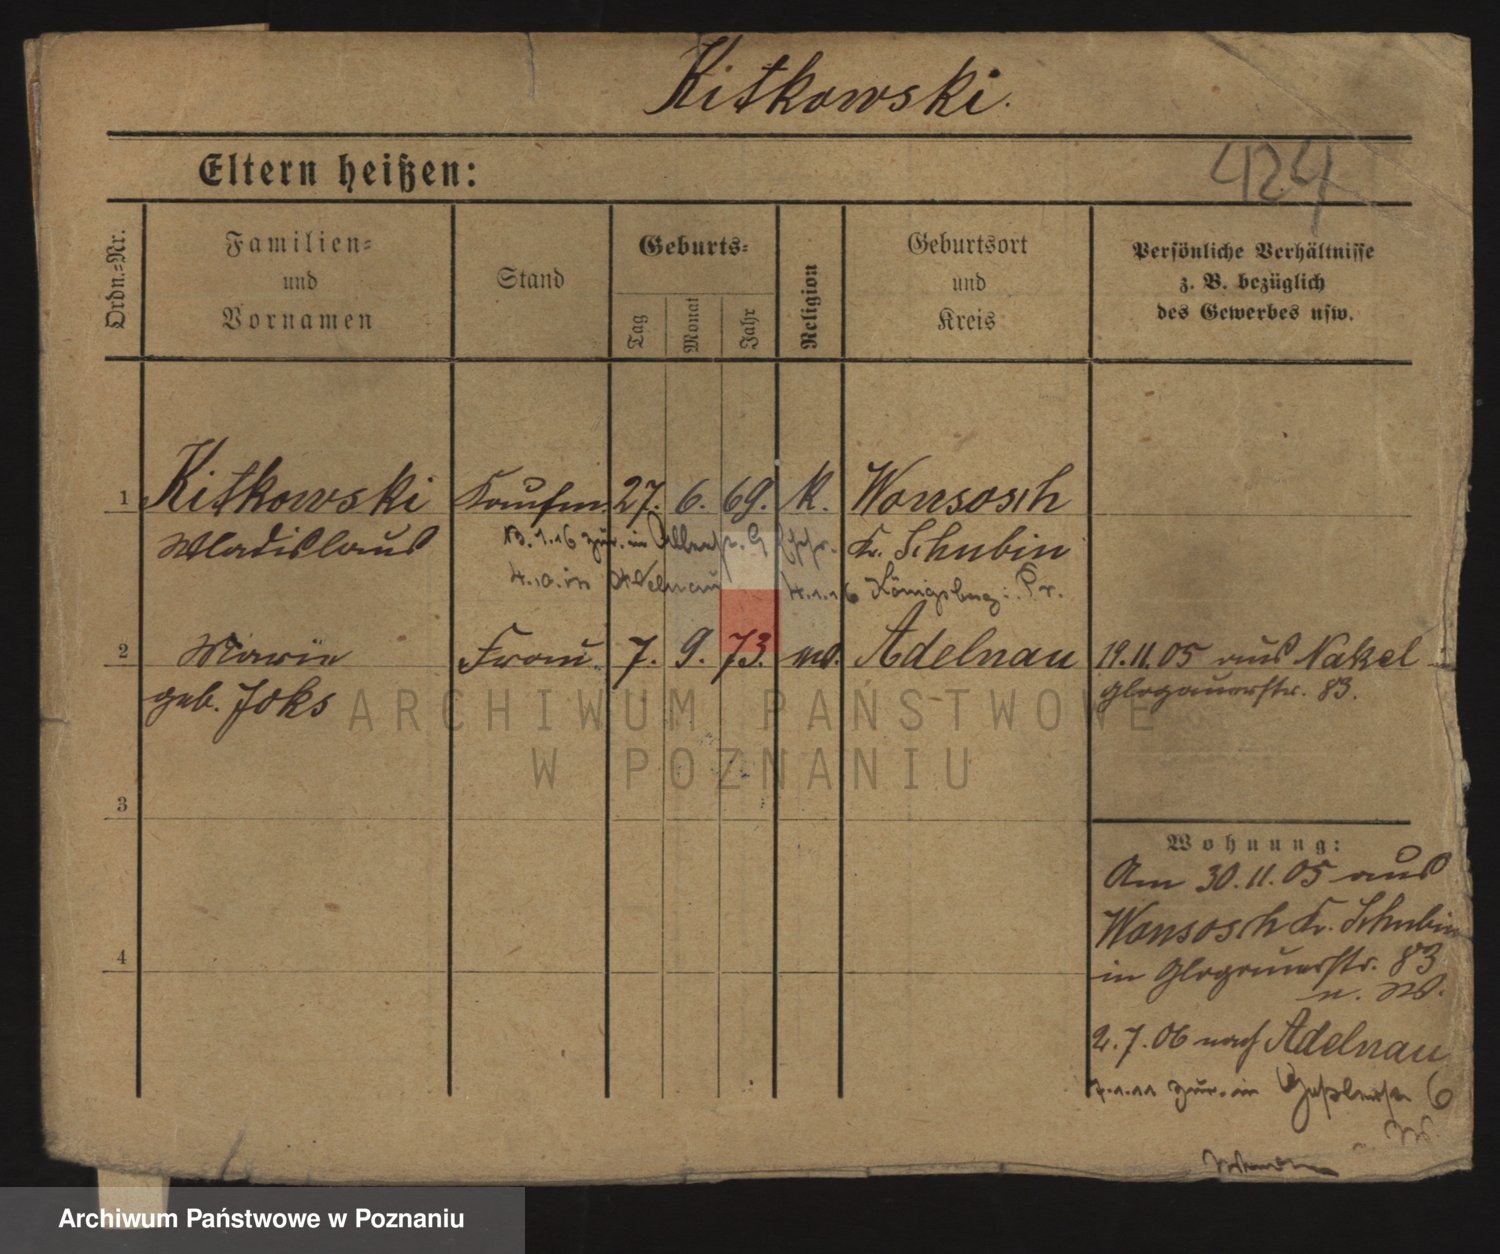 Kitkowski.
Eltern heißen:
424
Ordn.-Nr.
Familien-
und
Vornamen
Stand
Geburts-
Tag
Monat
Jahr
Religion
Geburtsort
und
Kreis
Persönliche Verhältnisse
z. B. bezüglich
des Gewerbes usw.
1 Kitkowski Kaufm. 27. 6. 69. k. Wonsosch
Wladislaus Kr. Schubin
13.1.16 zur. in
4.10. in Adelnau 4.1.16 Königsberg i. Pr.
2 Marie Frau 7. 9. 73. Adelnau 19.11.05 aus Nakel
geb. Joks Glogauerstr. 83.
ARCHIWUM PAŃSTWOWE
W POZNANIU
3
Wohnung:
Am 30.11.05 aus
Wonsosch Kr. Schubin
4
in Glogauerstr. 83
2.7.06 nach Adelnau
7.1.11 zur. in 6
Archiwum Państwowe w Poznaniu